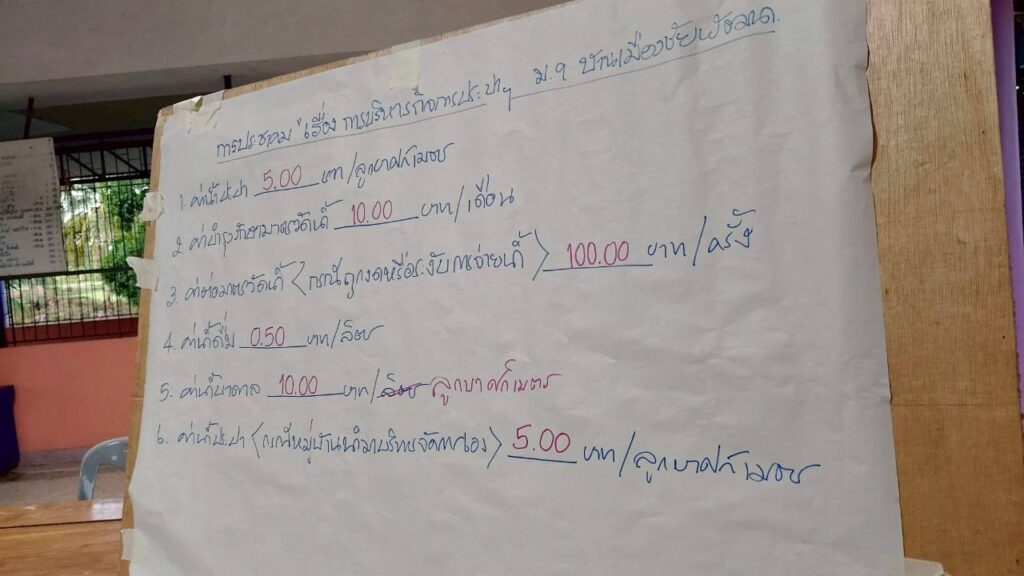 การประชาคม "เรื่อง การบริหารกิจการประปาฯ ม.9 บ้านเมืองชัยพัฒนา.
1. ค่าน้ำประปา 5.00 บาท/ลูกบาศก์เมตร
2. ค่าบำรุงรักษามาตรวัดน้ำ 10.00 บาท/เดือน
3. ค่าต่อมาตรวัดน้ำ <กรณีถูกงดหรือระงับการจ่ายน้ำ> 100.00 บาท/ครั้ง
4. ค่าน้ำดื่ม 0.50 บาท/ลิตร
5. ค่าน้ำบาดาล 10.00 บาท/ลิตร ลูกบาศก์เมตร
6. ค่าน้ำประปา <กรณีหมู่บ้านนำมาบริหารจัดการเอง> 5.00 บาท/ลูกบาศก์เมตร